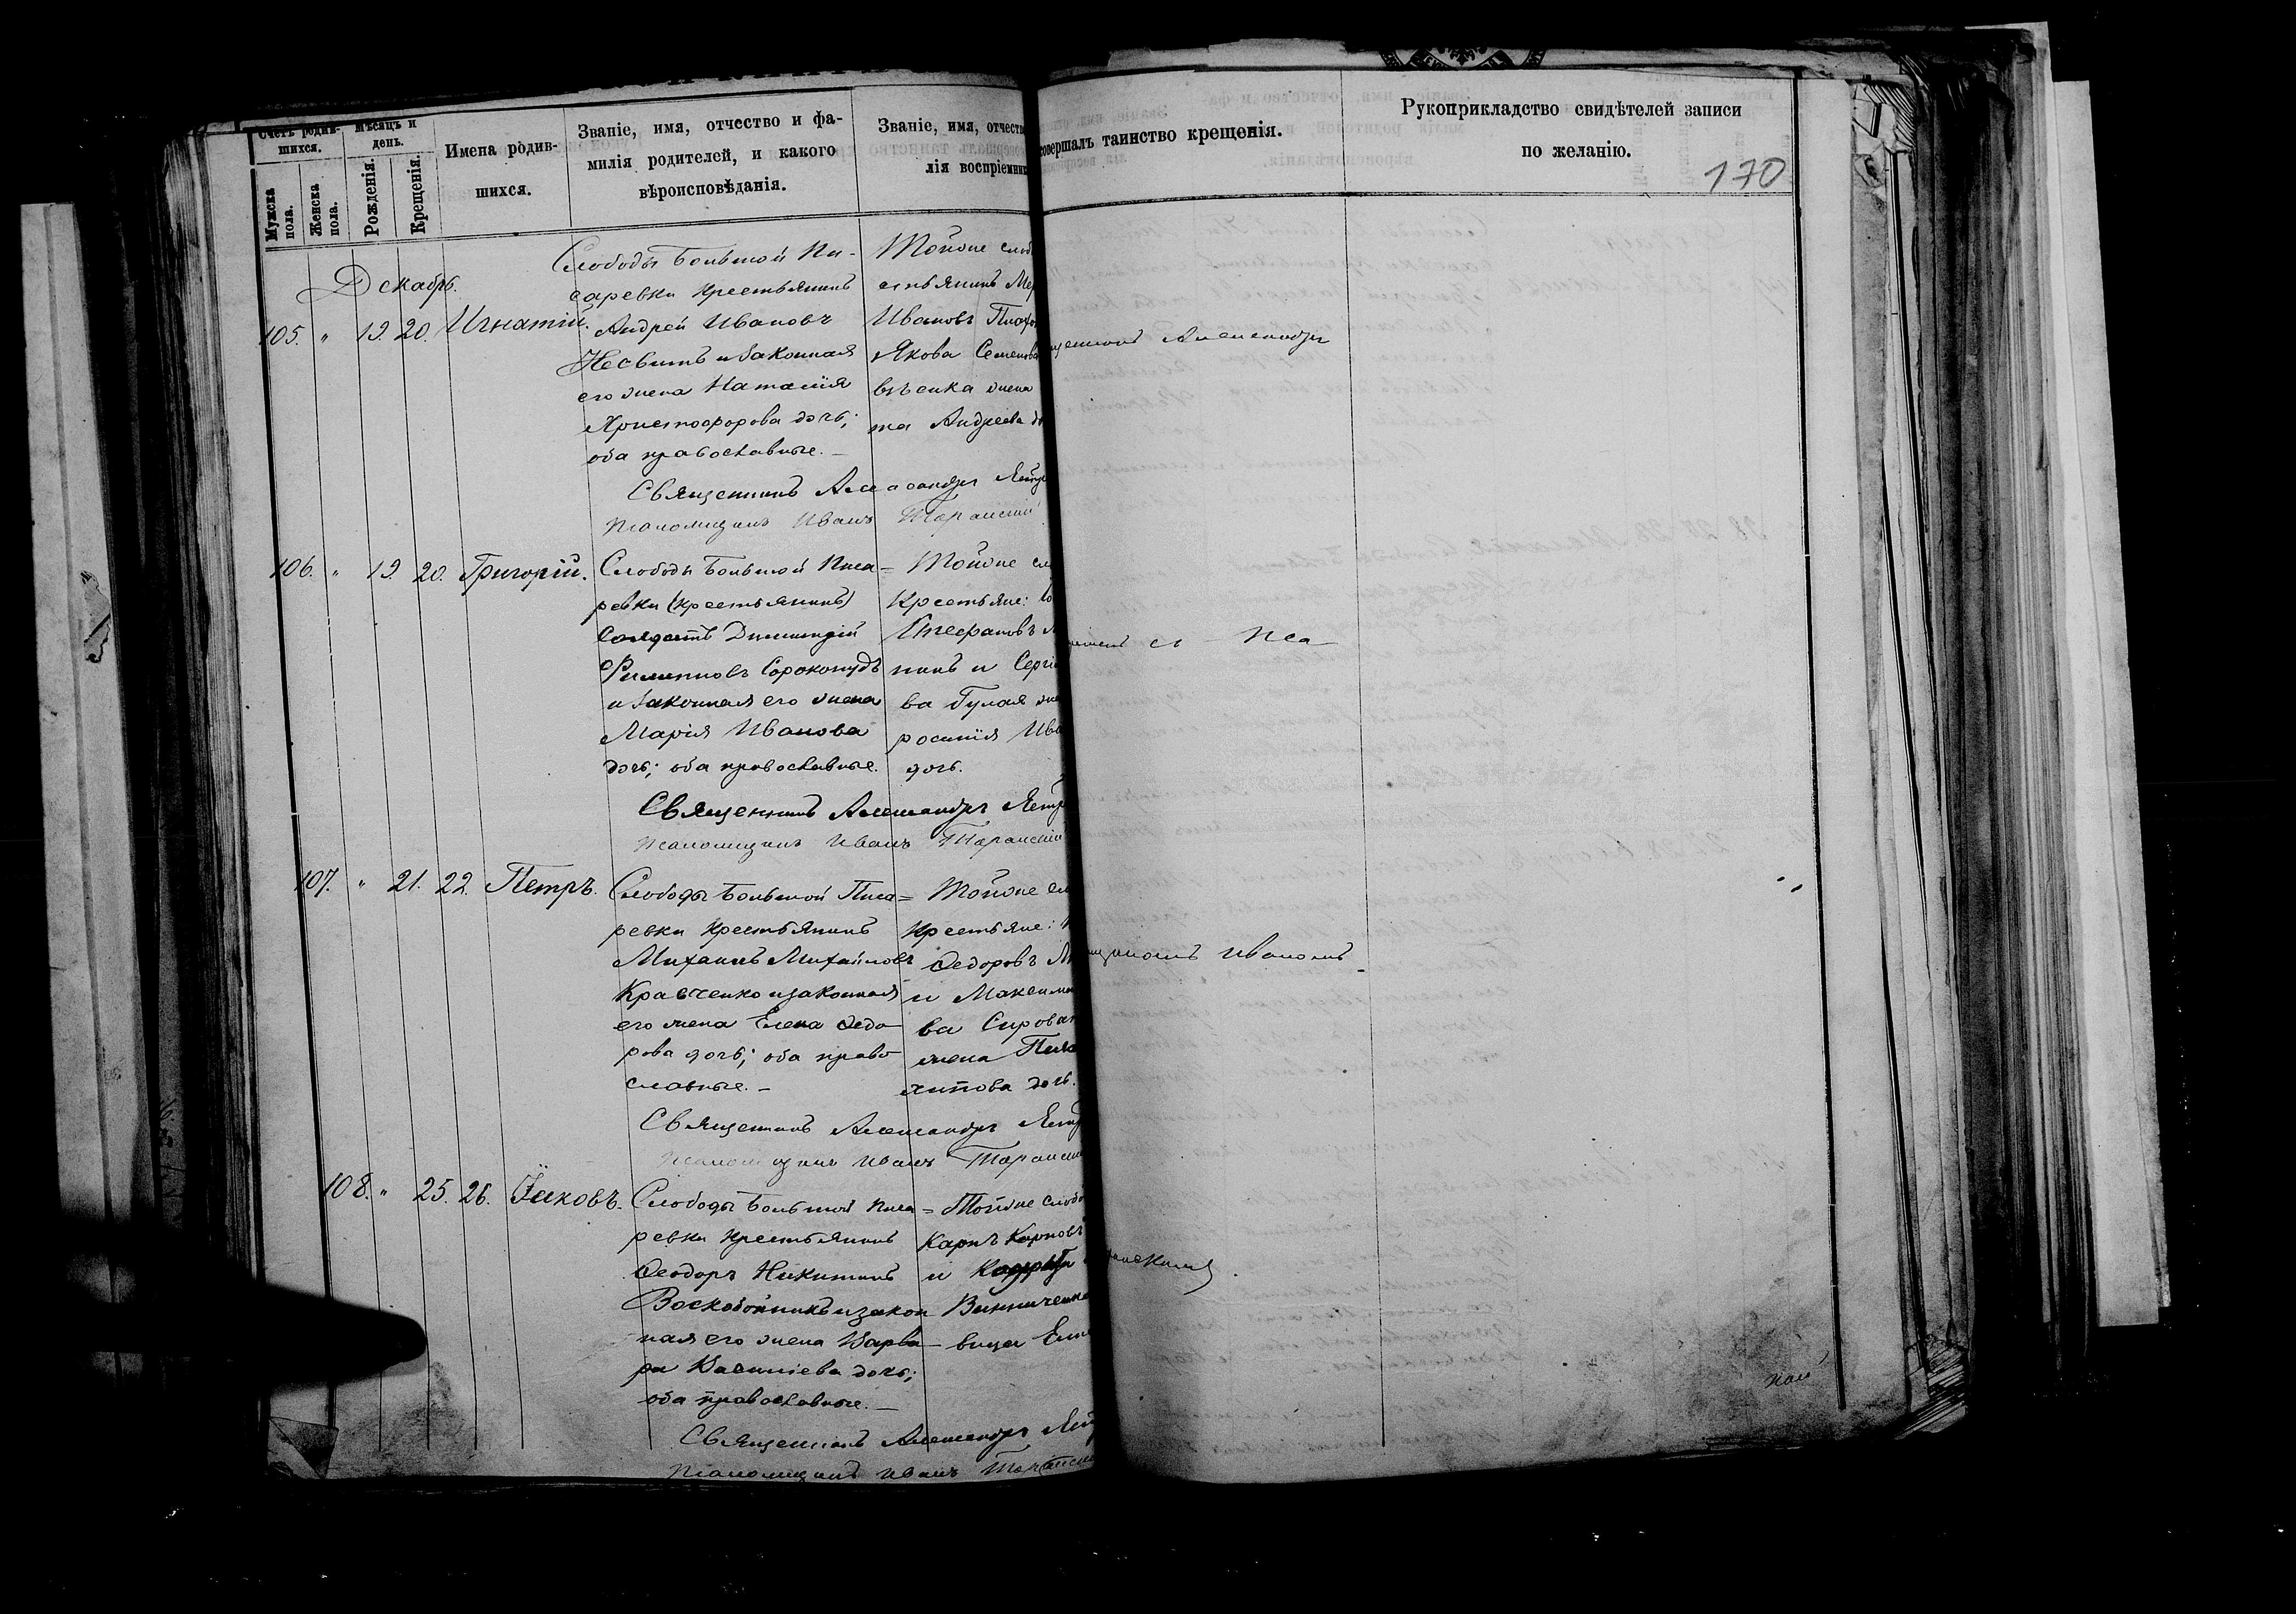 Счетъ родив-
шихся.
Мѣсяцъ и
день.
Мужска
пола.
Женска
пола.
Рожденія.
Крещенія.
Имена родив-
шихся.
Званіе, имя, отчество и фа-
милія родителей, и какого
вѣроисповѣданія.
Званіе, имя, отчест
лія воспріемник
совершалъ таинство крещенія.
Рукоприкладство свидѣтелей записи
по желанію.
170
Декабрь.
105. " 19. 20. Игнатій.
Слободы Большой Пи-
саревки крестьянинъ
Андрей Ивановъ
Несвитъ и законная
его жена Наталія
Христофорова дочь;
оба православные.
Тойже слоб
естьянинъ
Ивановъ
Якова Семенова
жена
та Андреева
Александр
Священникъ Александръ
Псаломщикъ Иванъ Таранскій
106. " 19. 20. Григорій.
Слободы Большой Писа=
ревки (крестьянинъ)
Солдатъ Димитрій
Филипповъ Сорокопудъ
и законная его жена
Марія Иванова
дочь; оба православные.
Тойже сл
Крестьяне:
Стефановъ
никъ и Сергі
ва Гулая
росинія Ива
дочь.
съ Пса
Священникъ Александръ
Псаломщикъ Иванъ Таранскій
107. " 21. 22. Петръ.
Слободы Большой Писа=
ревки крестьянинъ
Михаилъ Михайловъ
Кравченко и законная
его жена Елена Ѳедо-
рова дочь; оба право-
славные.-
Тойже сл
Крестьяне:
Ѳедоровъ
и Максима
ва Сирова
жена Пела
хипова дочь.
Иваномъ
Священникъ Александръ
Псаломщикъ Иванъ Таранскі
108. " 25. 26. Іаковъ.
Слободы Большой Писа=
ревки крестьянинъ
Ѳеодоръ Никитинъ
Воскобойникъ и закон
ная его жена Варва-
ра Василіева дочь;
оба православные.-
Тойже слобо
Карпъ Карповъ
и
Винниченко
вица
Священникъ Александръ
Псаломщикъ Иванъ